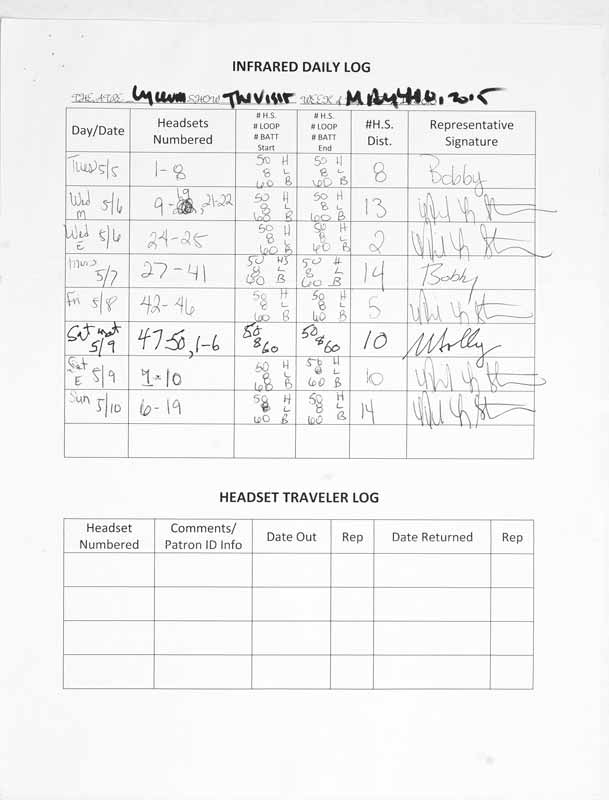 INFRARED DAILY LOG
THEATRE Lyceum SHOW The Visit WEEK MAY 4-10, 2015
Day/Date Headsets Numbered # H.S. # LOOP # BATT Start # H.S. # LOOP # BATT End #H.S. Dist. Representative Signature
Tues 5/5 1-8 50 H 8 L 60 B 50 H 8 L 60 B 8 Bobby
Wed M 5/6 9-19, 21-22 50 H 8 L 60 B 50 H 8 L 60 B 13
Wed E 5/6 24-25 50 H 8 L 60 B 50 H 8 L 60 B 2
Thurs 5/7 27-41 50 HS 8 L 60 B 50 H 8 L 60 B 14 Bobby
Fri 5/8 42-46 50 H 8 L 60 B 50 H 8 L 60 B 5
Sat mat 5/9 47-50, 1-6 50 8 60 50 8 60 10 Molly
Sat E 5/9 7-10 50 H 8 L 60 B 50 H 8 L 60 B 10
Sun 5/10 6-19 50 H 8 L 60 B 50 H 8 L 60 B 14
HEADSET TRAVELER LOG
Headset Numbered Comments/ Patron ID Info Date Out Rep Date Returned Rep